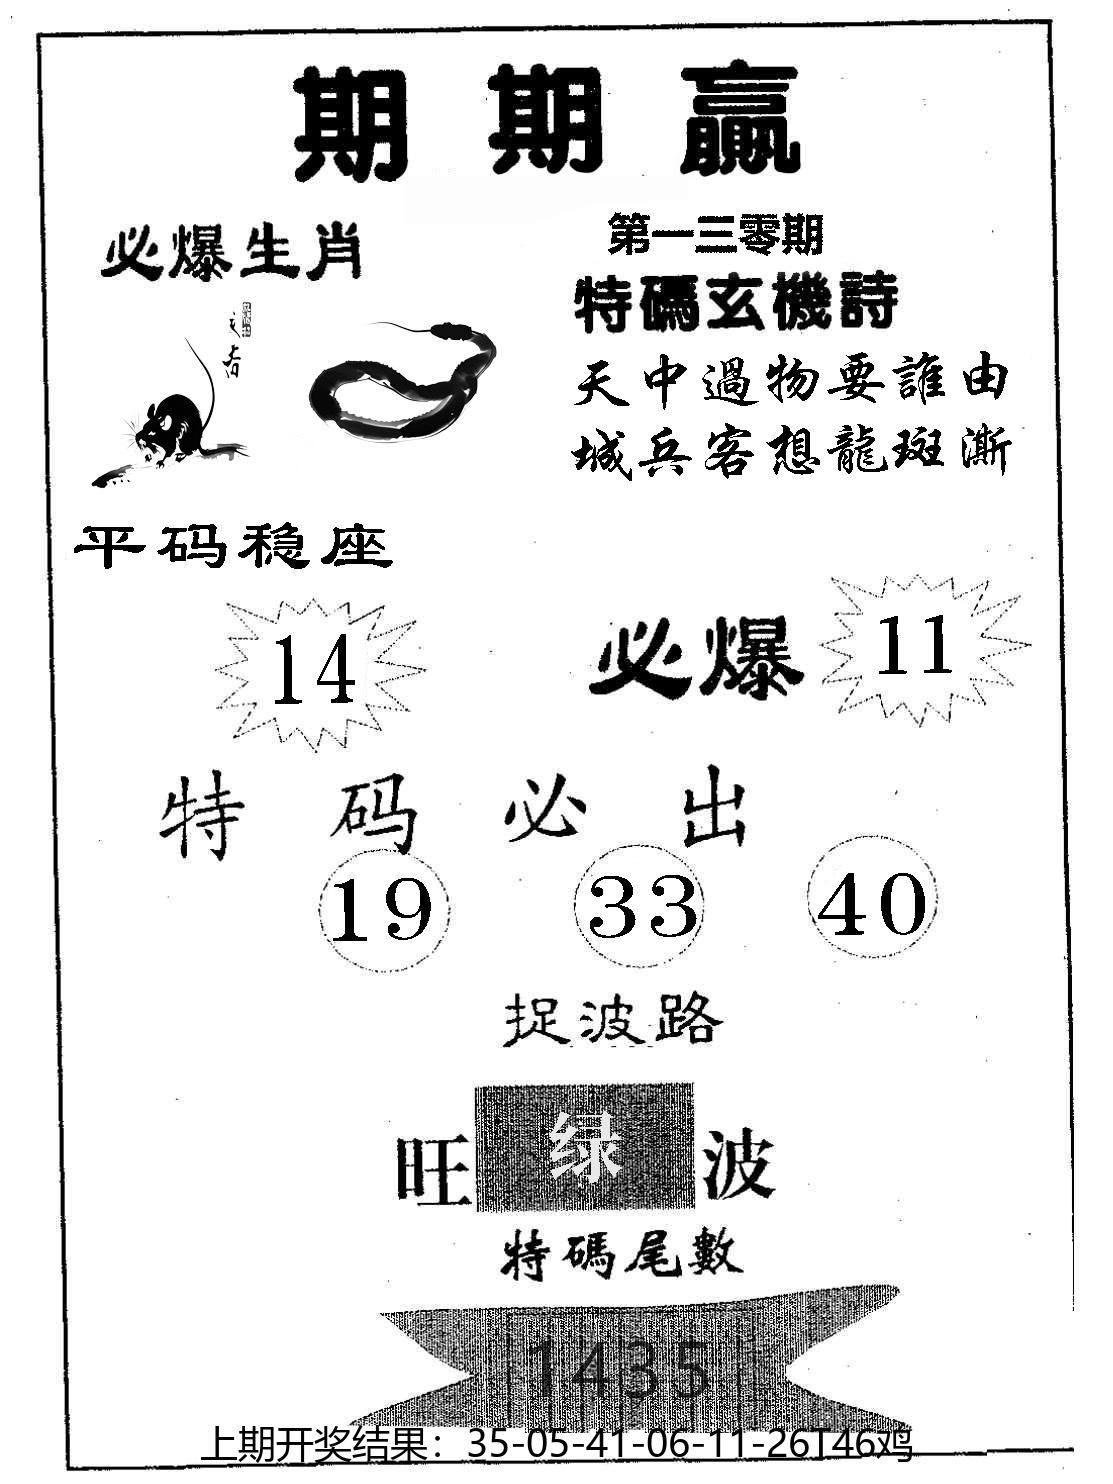 期期贏
必爆生肖
第一三零期
特碼玄機詩
天中過物要誰由
城兵客想龍斑漸
平码稳座
14
必爆
11
特码必出
19 33 40
捉波路
旺绿波
特碼尾數
1435
上期开奖结果：35-05-41-06-11-26T46鸡